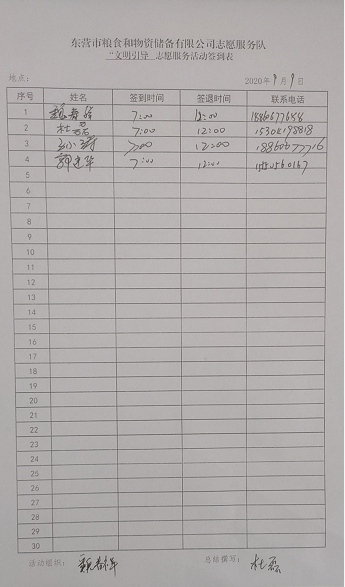 东营市粮食和物资储备有限公司志愿服务队
“文明引导”志愿服务活动签到表
地点： 2020年9月9日
序号 姓名 签到时间 签退时间 联系电话
1 7:00 12:00
2 杜磊 7:00 12:00
3 7:00 12:00 18860677716
4 7:00 12:00
5
6
7
8
9
10
11
12
13
14
15
16
17
18
19
20
21
22
23
24
25
26
27
28
29
30
活动组织： 总结撰写：杜磊